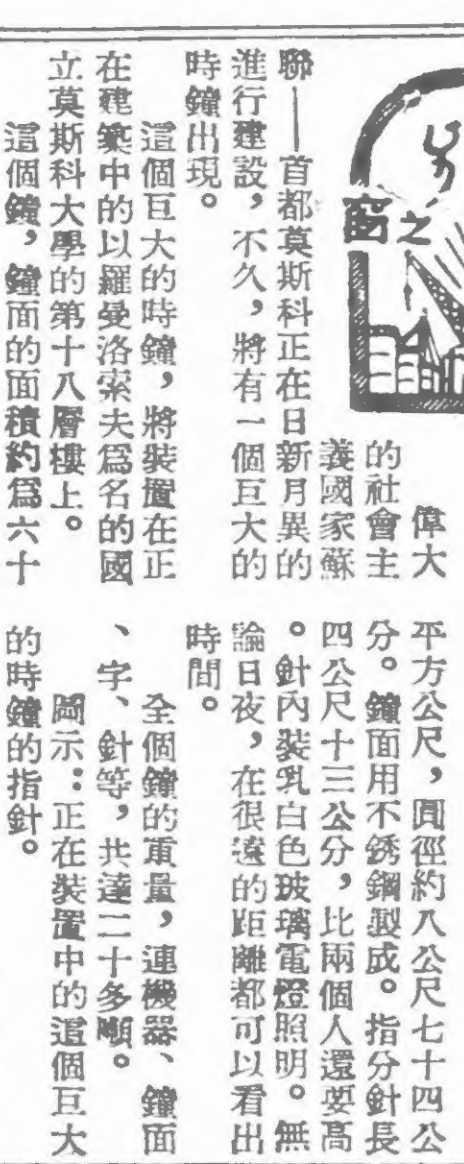 之窗
偉大
的社會主
義國家蘇
聯——首都莫斯科正在日新月異的
進行建設,不久,將有一個巨大的
時鐘出現。
這個巨大的時鐘,將裝置在正
在建築中的以羅曼洛索夫爲名的國
立莫斯科大學的第十八層樓上。
這個鐘,鐘面的面積約爲六十
平方公尺,圓徑約八公尺七十四公
分。鐘面用不銹鋼製成。指分針長
四公尺十三公分,比兩個人還要高
。針內裝乳白色玻璃電燈照明。無
論日夜,在很遠的距離都可以看出
時間。
全個鐘的重量,連機器、鐘面
、字、針等,共達二十多噸。
圖示:正在裝置中的這個巨大
的時鐘的指針。